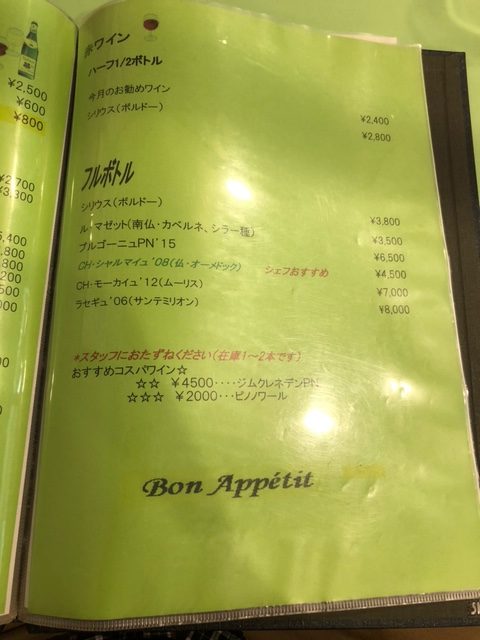 ¥2,500
¥600
¥800
赤ワイン
ハーフ1/2ボトル
今月のお勧めワイン ¥2,400
シリウス(ボルドー) ¥2,800
フルボトル
シリウス(ボルドー) ¥3,800
ル・マゼット(南仏・カベルネ、シラー種) ¥3,500
ブルゴーニュPN'15 ¥6,500
CH・シャルマイユ'08(仏・オーメドック) シェフおすすめ ¥4,500
CH・モーカイユ'12(ムーリス) ¥7,000
ラセギュ'06(サンテミリオン) ¥8,000
*スタッフにおたずねください(在庫1~2本です)
おすすめコスパワイン☆
☆☆ ¥4500････ジムクレネデンPN
☆☆☆ ¥2000･･･ピノノワール
Bon Appétit